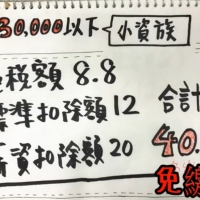 30,000以下 小資族
稅額 8.8
標準扣除額 12 合計
薪資扣除額 20 40.
免繳